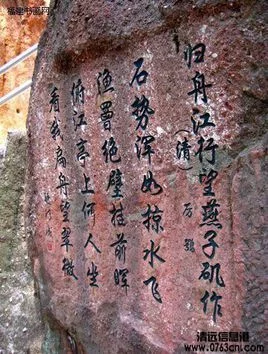 归舟江行望燕子矶作
（清）厉鹗
石势浑如掠水飞
渔罾绝壁挂前晖
俯江亭上何人坐
看我扁舟望翠微
清远信息港
www.0763cn.com